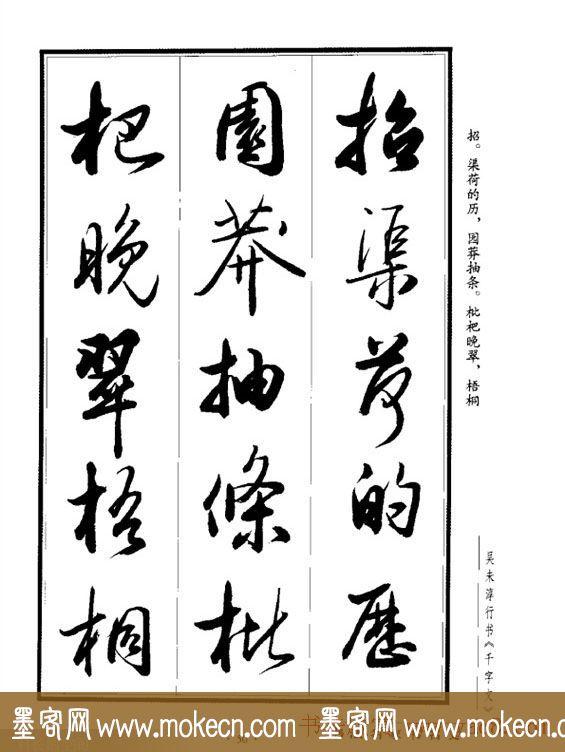 招渠荷的歷
園莽抽條枇
杷晚翠梧桐
招。渠荷的历，园莽抽条。枇杷晚翠，梧桐
吴未淳行书《千字文》
墨客网 www.mokecn.com 墨客网 www.mokecn.com